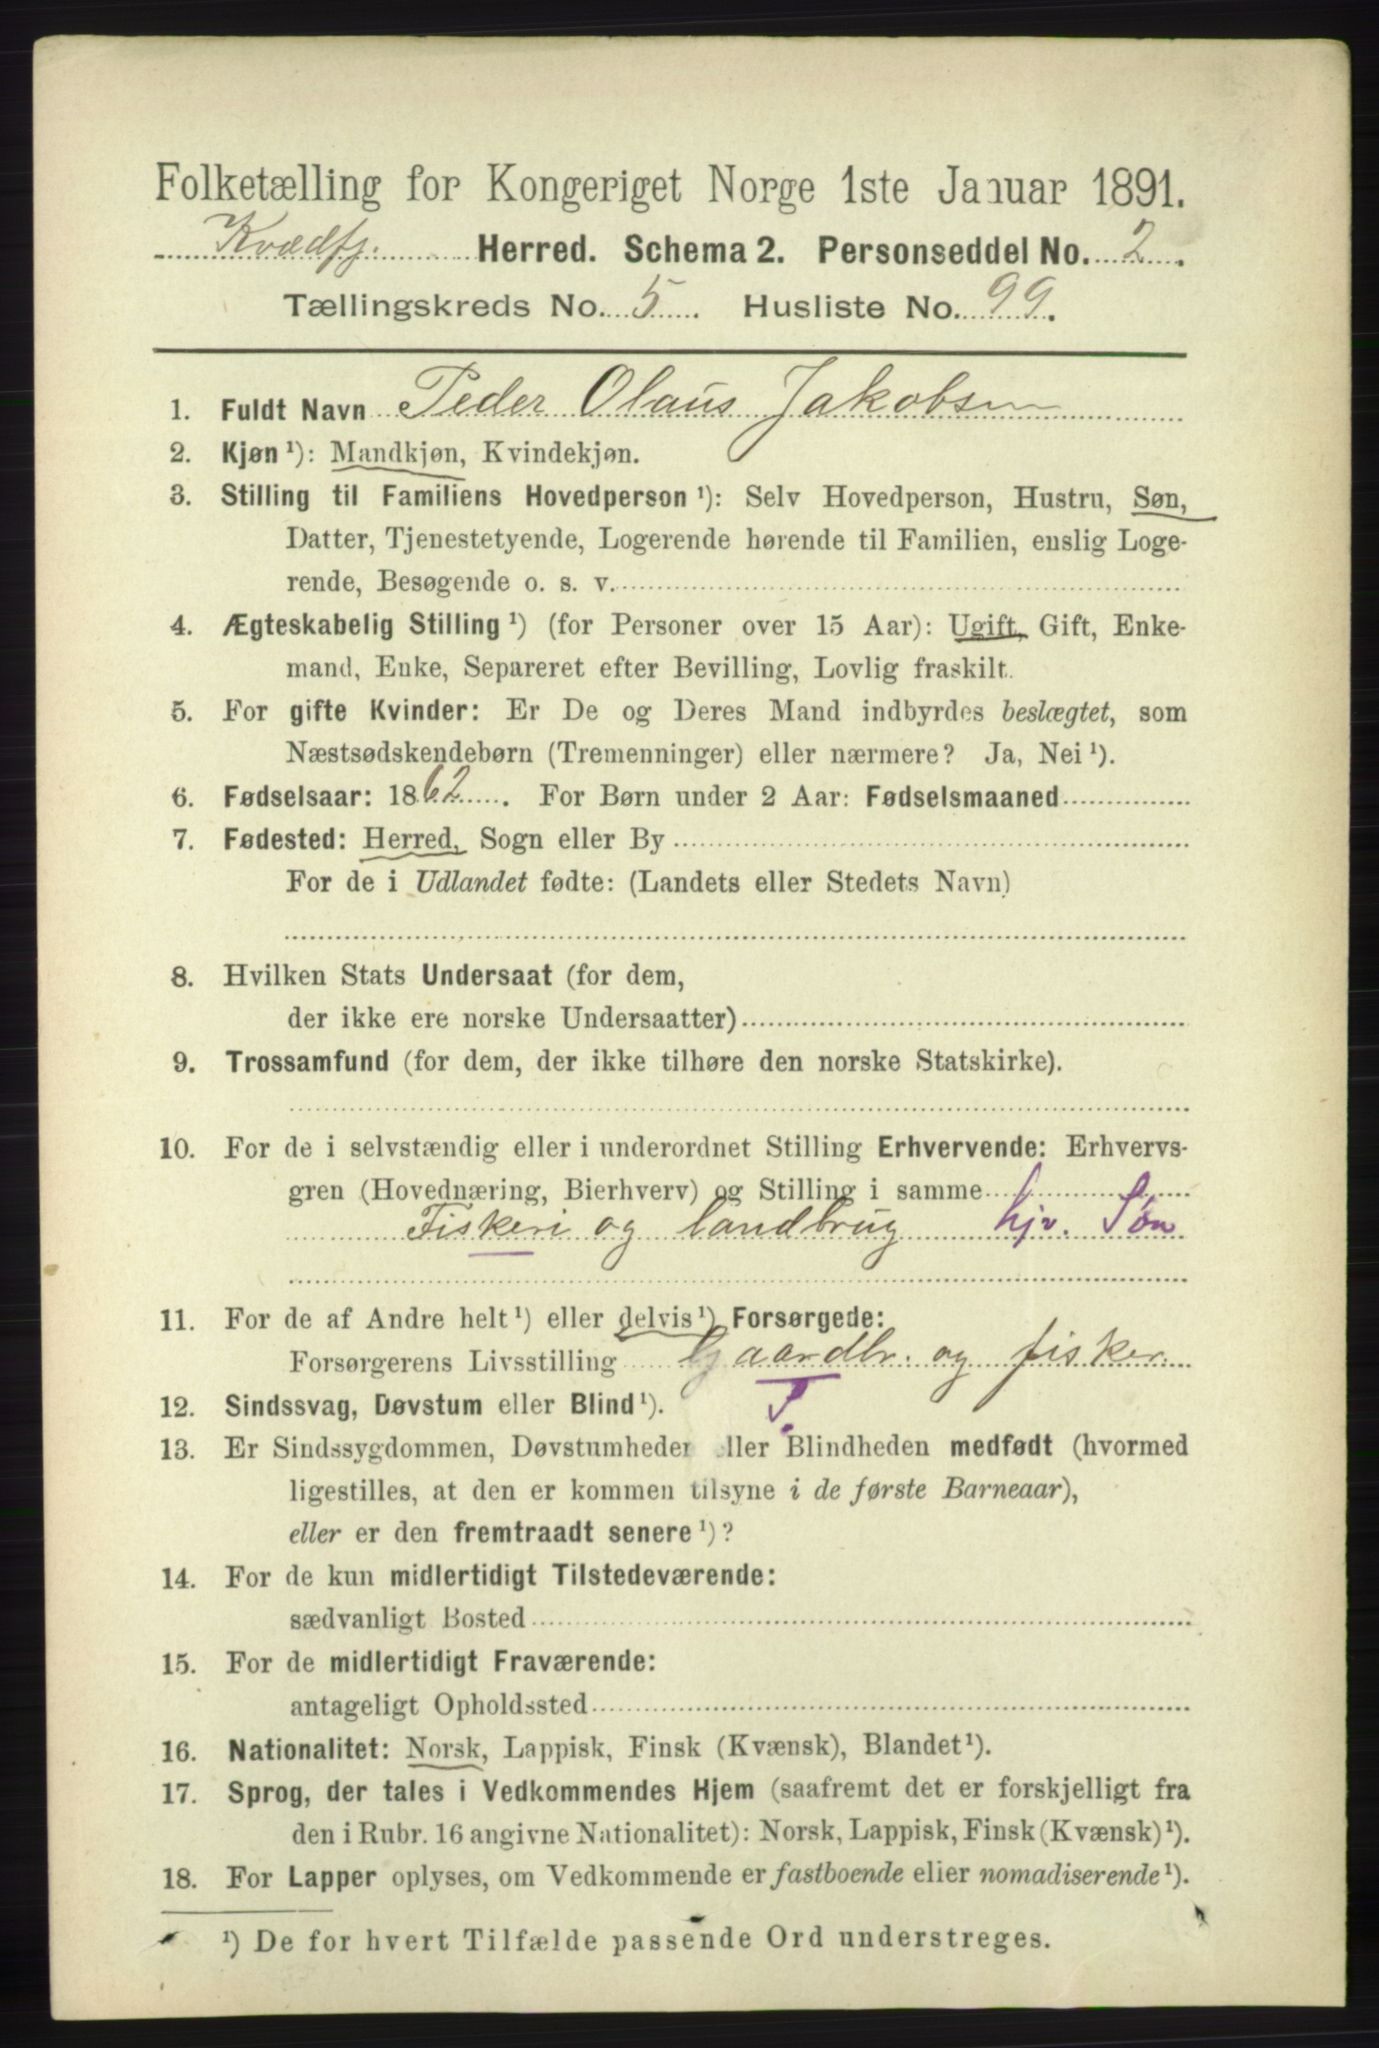 Folketælling for Kongeriget Norge 1ste Januar 1891.
Kvædfj. Herred. Schema 2. Personseddel No. 2.
Tællingskreds No. 5. Husliste No. 99.
1. Fuldt Navn Peder Olaus Jakobsen
2. Kjøn ¹): Mandkjøn, Kvindekjøn.
3. Stilling til Familiens Hovedperson ¹): Selv Hovedperson, Hustru, Søn,
Datter, Tjenestetyende, Logerende hørende til Familien, enslig Loge-
rende, Besøgende o. s. v.
4. Ægteskabelig Stilling ¹) (for Personer over 15 Aar): Ugift, Gift, Enke-
mand, Enke, Separeret efter Bevilling, Lovlig fraskilt.
5. For gifte Kvinder: Er De og Deres Mand indbyrdes beslægtet, som
Næstsødskendebørn (Tremenninger) eller nærmere? Ja, Nei ¹).
6. Fødselsaar: 1862. For Børn under 2 Aar: Fødselsmaaned
7. Fødested: Herred, Sogn eller By
For de i Udlandet fødte: (Landets eller Stedets Navn)
8. Hvilken Stats Undersaat (for dem,
der ikke ere norske Undersaatter)
9. Trossamfund (for dem, der ikke tilhøre den norske Statskirke).
10. For de i selvstændig eller i underordnet Stilling Erhvervende: Erhvervs-
gren (Hovednæring, Bierhverv) og Stilling i samme
Fiskeri og landbrug hjv. Søn
11. For de af Andre helt ¹) eller delvis ¹) Forsørgede:
Forsørgerens Livsstilling Gaardbr. og fisker
12. Sindssvag, Døvstum eller Blind ¹). F.
13. Er Sindssygdommen, Døvstumheden eller Blindheden medfødt (hvormed
ligestilles, at den er kommen tilsyne i de første Barneaar),
eller er den fremtraadt senere ¹)?
14. For de kun midlertidigt Tilstedeværende:
sædvanligt Bosted
15. For de midlertidigt Fraværende:
antageligt Opholdssted
16. Nationalitet: Norsk, Lappisk, Finsk (Kvænsk), Blandet ¹).
17. Sprog, der tales i Vedkommendes Hjem (saafremt det er forskjelligt fra
den i Rubr. 16 angivne Nationalitet): Norsk, Lappisk, Finsk (Kvænsk) ¹).
18. For Lapper oplyses, om Vedkommende er fastboende eller nomadiserende ¹).
¹) De for hvert Tilfælde passende Ord understreges.